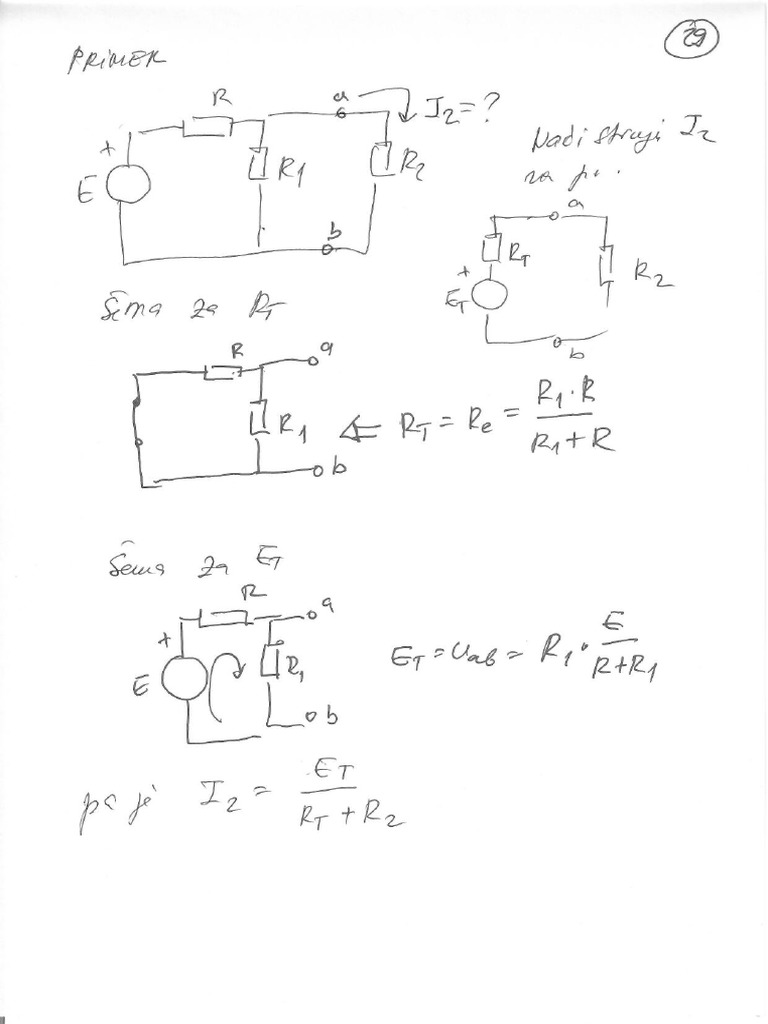 29
PRIMER
R
a
I2=?
+
E
R1
R2
b
Nađi struju I2
za
a
RT
+
ET
R2
b
Šema za RT
R
a
R1
b
⇐ RT = Re = R1·R / R1+R
Šema za ET
R
a
+
E
R1
b
ET = Uab = R1 · E / R+R1
pa je I2 = ET / RT + R2